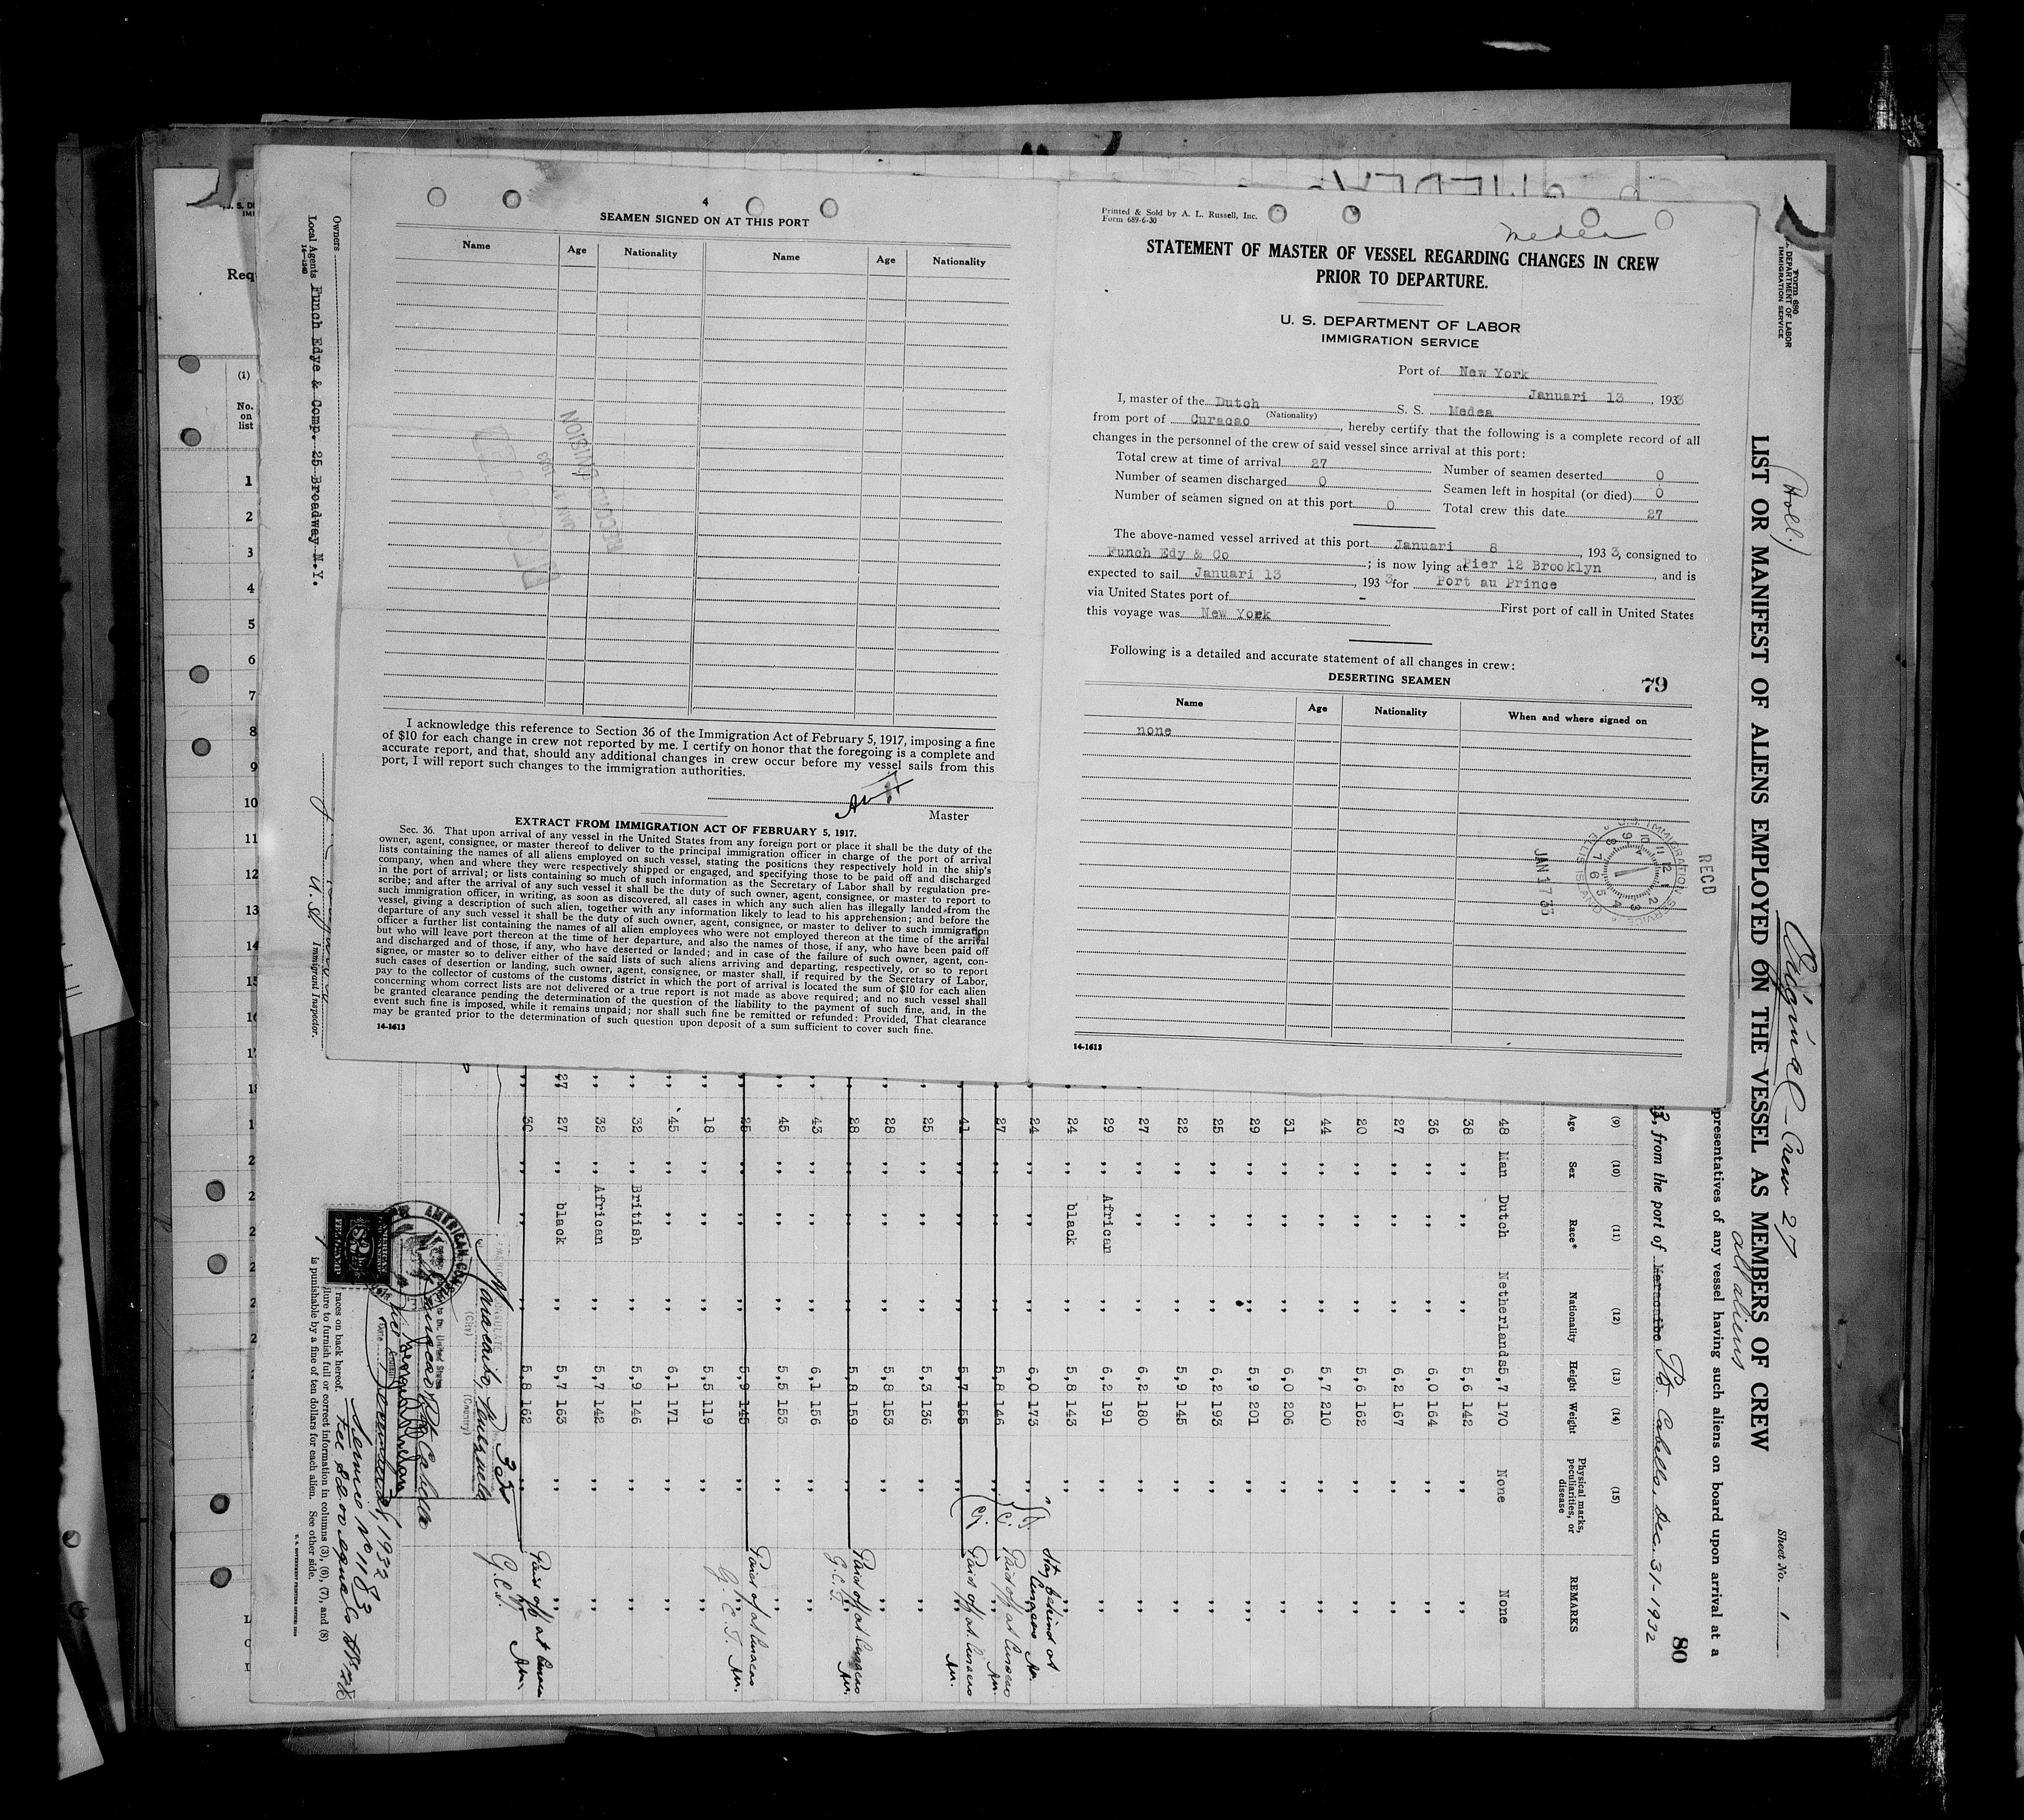 4
SEAMEN SIGNED ON AT THIS PORT
Name Age Nationality Name Age Nationality
RECORD DIVISION
I acknowledge this reference to Section 36 of the Immigration Act of February 5, 1917, imposing a fine
of $10 for each change in crew not reported by me. I certify on honor that the foregoing is a complete and
accurate report, and that, should any additional changes in crew occur before my vessel sails from this
port, I will report such changes to the immigration authorities.
Master
EXTRACT FROM IMMIGRATION ACT OF FEBRUARY 5, 1917.
Sec. 36. That upon arrival of any vessel in the United States from any foreign port or place it shall be the duty of the
owner, agent, consignee, or master thereof to deliver to the principal immigration officer in charge of the port of arrival
lists containing the names of all aliens employed on such vessel, stating the positions they respectively hold in the ship's
company, when and where they were respectively shipped or engaged, and specifying those to be paid off and discharged
in the port of arrival; or lists containing so much of such information as the Secretary of Labor shall by regulation pre-
scribe; and after the arrival of any such vessel it shall be the duty of such owner, agent, consignee, or master to report to
such immigration officer, in writing, as soon as discovered, all cases in which any such alien has illegally landed from the
vessel, giving a description of such alien, together with any information likely to lead to his apprehension; and before the
departure of any such vessel it shall be the duty of such owner, agent, consignee, or master to deliver to such immigration
officer a further list containing the names of all alien employees who were not employed thereon at the time of the arrival
but who will leave port thereon at the time of her departure, and also the names of those, if any, who have been paid off
and discharged and of those, if any, who have deserted or landed; and in case of the failure of such owner, agent, con-
signee, or master so to deliver either of the said lists of such aliens arriving and departing, respectively, or so to report
such cases of desertion or landing, such owner, agent, consignee, or master shall, if required by the Secretary of Labor,
pay to the collector of customs of the customs district in which the port of arrival is located the sum of $10 for each alien
concerning whom correct lists are not delivered or a true report is not made as above required; and no such vessel shall
be granted clearance pending the determination of the question of the liability to the payment of such fine, and, in the
event such fine is imposed, while it remains unpaid; nor shall such fine be remitted or refunded: Provided, That clearance
may be granted prior to the determination of such question upon deposit of a sum sufficient to cover such fine.
14-1613
Printed & Sold by A. L. Russell, Inc.
Form 689-6-30
Medea
STATEMENT OF MASTER OF VESSEL REGARDING CHANGES IN CREW
PRIOR TO DEPARTURE.
U. S. DEPARTMENT OF LABOR
IMMIGRATION SERVICE
Port of New York
Januari 13, 1933
I, master of the Dutch S. S. Medea
(Nationality)
from port of Curacao, hereby certify that the following is a complete record of all
changes in the personnel of the crew of said vessel since arrival at this port:
Total crew at time of arrival 27 Number of seamen deserted 0
Number of seamen discharged 0 Seamen left in hospital (or died) 0
Number of seamen signed on at this port 0 Total crew this date 27
The above-named vessel arrived at this port Januari 8, 1933, consigned to
Funch Edy & Co; is now lying at Pier 12 Brooklyn, and is
expected to sail Januari 13, 1933 for Port au Prince
via United States port of - First port of call in United States
this voyage was New York
Following is a detailed and accurate statement of all changes in crew:
DESERTING SEAMEN
79
Name Age Nationality When and where signed on
none
RECD
U.S. IMMIGRATION SERVICE ELLIS ISLAND
JAN 17 33
14-1613
Form 680
U. S. DEPARTMENT OF LABOR
IMMIGRATION SERVICE
(Holl.)
Original - Crew 27
all aliens
Sheet No. 1
LIST OR MANIFEST OF ALIENS EMPLOYED ON THE VESSEL AS MEMBERS OF CREW
presentatives of any vessel having such aliens on board upon arrival at a
80
3, from the port of Maracaibo Pto. Cabello, Dec. 31-1932
(9) (10) (11) (12) (13) (14) (15)
Age Sex Race* Nationality Height Weight Physical marks, peculiarities, or disease REMARKS
48 Man Dutch Netherlands 5,7 170 None None
38 ,, ,, ,, 5,6 142 ,, ,,
36 ,, ,, ,, 6,0 164 ,, ,,
27 ,, ,, ,, 6,2 167 ,, ,,
20 ,, ,, ,, 5,6 162 ,, ,,
44 ,, ,, ,, 5,7 210 ,, ,,
31 ,, ,, ,, 6,0 206 ,, ,,
29 ,, ,, ,, 5,9 201 ,, ,,
25 ,, ,, ,, 6,2 193 ,, ,,
22 ,, ,, ,, 5,9 145 ,, ,,
27 ,, ,, ,, 6,2 180 ,, ,,
29 ,, African ,, 6,2 191 ,, ,,
24 ,, black ,, 5,8 143 ,, ,,
24 ,, ,, ,, 6,0 173 ,, Stay behind at Curacao
27 ,, ,, ,, 5,8 146 ,, Paid off at Curacao
41 ,, ,, ,, 5,7 155 ,, Paid off at Curacao
25 ,, ,, ,, 5,3 136 ,, ,,
28 ,, ,, ,, 5,8 153 ,, ,,
28 ,, ,, ,, 5,8 159 ,, Paid off at Curacao
43 ,, ,, ,, 6,1 156 ,, ,,
45 ,, ,, ,, 5,5 153 ,, ,,
25 ,, ,, ,, 5,9 145 ,, Paid off at Curacao
18 ,, ,, ,, 5,5 119 ,, ,,
45 ,, ,, ,, 6,1 171 ,, ,,
32 ,, British ,, 5,9 146 ,, ,,
32 ,, African ,, 5,7 142 ,, ,,
27 27 ,, black ,, 5,7 163 ,, ,,
30 ,, ,, ,, 5,8 162 ,, Paid off at Curacao
Maracaibo, Venezuela
(City) (Country)
AMERICAN
$2
FEE STAMP
Service No 1183
Fee $2.00
races on back hereof.
lure to furnish full or correct information in columns (3), (6), (7), and (8)
is punishable by a fine of ten dollars for each alien. See other side.
Owners
Local Agents Funch Edye & Comp. 25 Broadway N.Y.
14-1240
Immigrant Inspector.
Req
(1)
No.
on
list
1
2
3
4
5
6
7
8
9
10
11
12
13
14